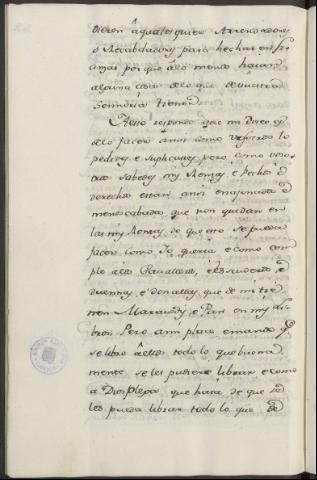 dieren à qualesquier Arrendadores
ó Recabdadores para hechar en su
amas por que à lo menos hayan
alguna cosa de lo que de vuestra
Señoria tienen
A esto respondo que mi deseo es
de lo facer ansi como vosotros lo
pedides, è suplicades, pero como voso
tros sabedes mis Rentas, è Pechos è
derechos estan ansi enajenados è
menoscabados que non quedan en
las mis Rentas de que esto se pueda
facer como Yo queria è como com
ple à los Cavalleros, è Escuderos, è
dueñas, è doncellas, que de mi tie
nen Maravedis, è Pan en mis li
bros, Pero à mi place è mando que
se libre à ellos todo lo que buena
mente se les pudiere librar è como
a Dios plega que haia de que se
les pueda librar todo lo que de